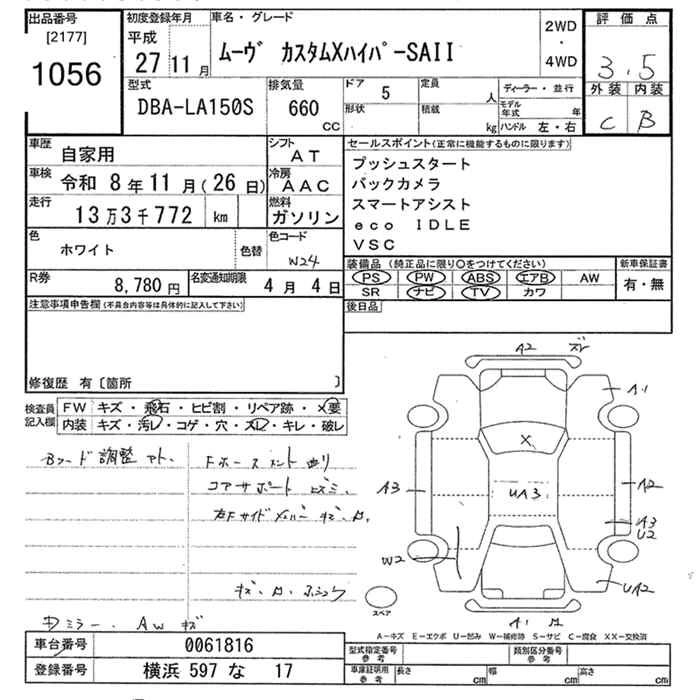 出品番号
[2177]
1056
初度登録年月
平成
27 11 月
車名・グレード
ムーヴ カスタムXハイパーSAII
2WD
・
4WD
評価点
3.5
外装 内装
C B
型式
DBA-LA150S
排気量
660
CC
ドア 5
形状
定員 人
積載 kg
ディーラー・並行
モデル年式 年
ハンドル 左・右
車歴 自家用
シフト AT
車検 令和 8年 11月(26日)
冷房 AAC
走行 13万3千772 km
燃料 ガソリン
色 ホワイト 色替
色コード W24
R券 8,780円
名変通知期限 4月 4日
セールスポイント(正常に機能するものに限ります)
プッシュスタート
バックカメラ
スマートアシスト
eco IDLE
VSC
装備品 (純正品に限り○をつけてください)
PS PW ABS エアB AW
SR ナビ TV カワ
新車保証書
有・無
後日品
注意事項申告欄(不具合内容等は具体的に記入して下さい)
修復歴 有〔箇所 〕
検査員記入欄
FW キズ・飛石・ヒビ割・リペア跡・×要
内装 キズ・汚レ・コゲ・穴・スレ・キレ・破レ
Bフード調整
コアサポート
左右サイドメンバー キズ・
キズ・
ミラー、AW キズ
A2
A1
X
A3
UA3
A2
A3
U2
W2
UA2
A1
スペア
A-キズ E-エクボ U-凹み W-補修跡 S-サビ C-腐食 XX-交換済
車台番号 0061816
登録番号 横浜 597 な 17
型式指定番号参考
類別区分番号参考
車庫証明用参考 長さ cm 幅 cm 高さ cm